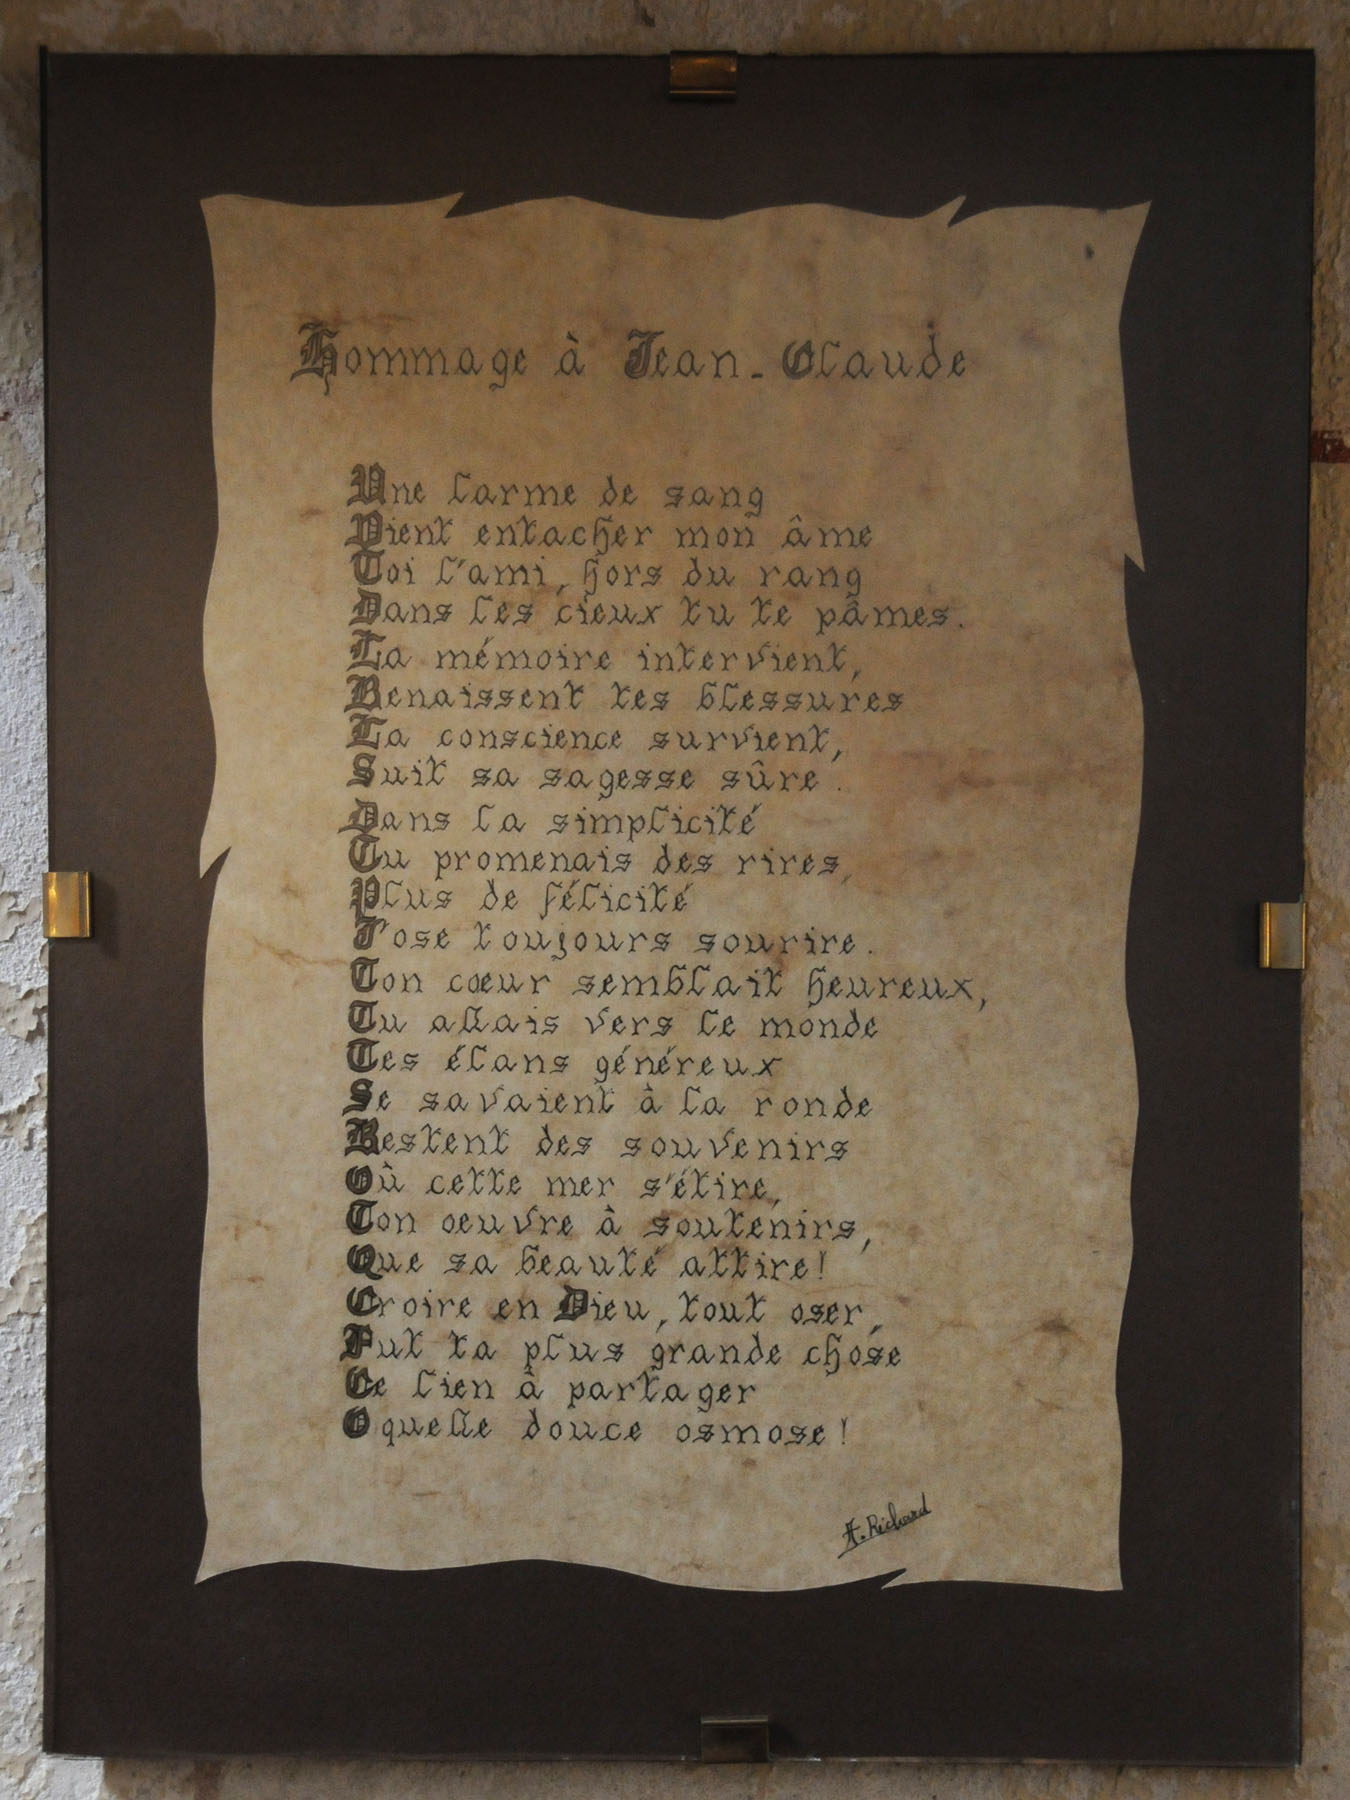 Hommage à Jean-Claude
Une larme de sang
Vient entacher mon âme
Toi l'ami, hors du rang
Dans les cieux tu te pâmes.
La mémoire intervient,
Renaissent tes blessures
La conscience survient,
Suit sa sagesse sûre.
Dans la simplicité
Tu promenais des rires,
Plus de félicité
J'ose toujours sourire.
Ton cœur semblait heureux,
Tu allais vers le monde
Tes élans généreux
Se savaient à la ronde
Restent des souvenirs
Où cette mer s'étire,
Ton oeuvre à soutenirs,
Que sa beauté attire!
Croire en Dieu, tout oser,
Fut ta plus grande chose
Ce lien à partager
O quelle douce osmose!
A. Richard